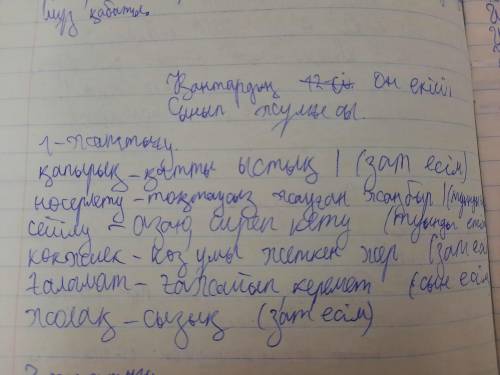 мұз қабаты.
Қаңтардың он екісі
Сынып жұмысы.
1-жаттығу.
қапырық – қатты ыстық | (зат есім)
нөсерлету – тоқтаусыз жауған жаңбыр | (туынды
сейілу – азаю, бірең кету (туынды етіс
көкжиек – көз ұшы жеткен жер (зат ес
ғаламат – ғажайып керемет (сын есім
жолақ – сызық (зат есім)